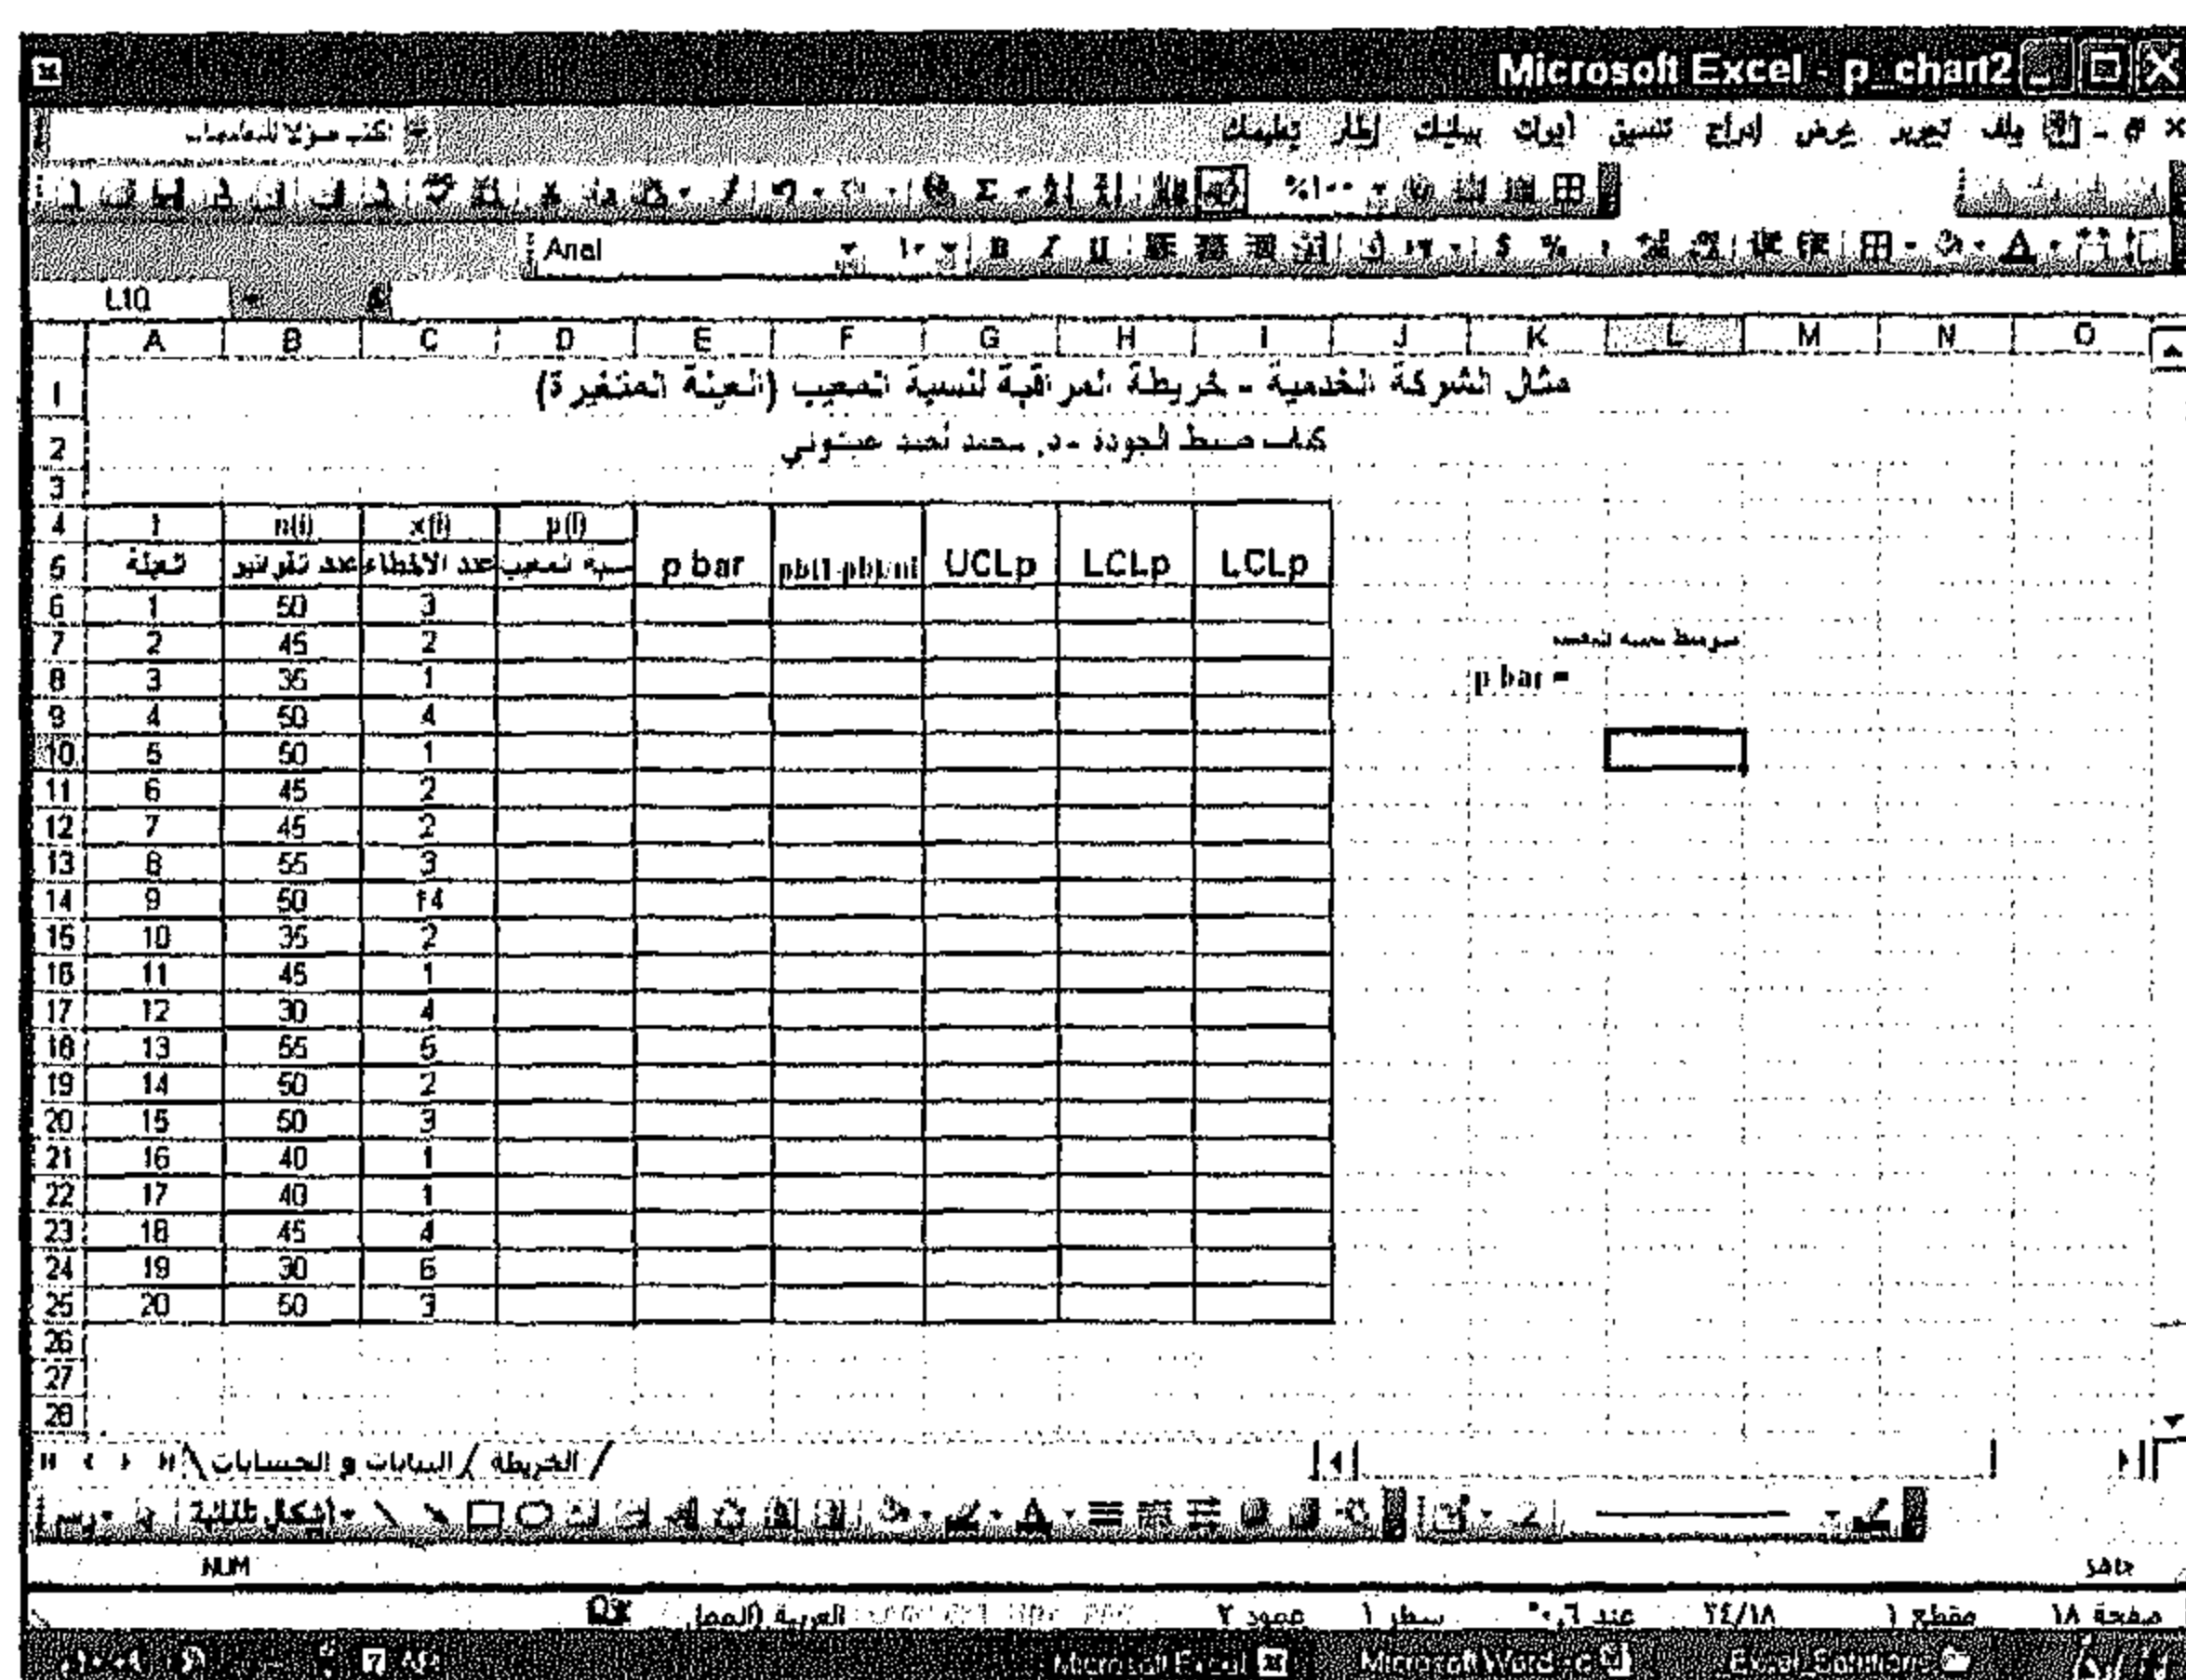 Microsoft Excel - p_chart2
ملف تحرير عرض إدراج تنسيق أدوات بيانات إطار تعليمات
اكتب سؤالا للتعليمات
%١٠٠
Arial ١٠ B I U $ %
L10
A B C D E F G H I J K L M N O
1 مثال الشركة الخدمية - خريطة المراقبة لنسبة المعيب (العينة المتغيرة)
2 كتاب ضبط الجودة - د. محمد أحمد عيشوني
3
4 I n(i) x(i) p(i)
5 العينة عدد الفواتير عدد الأخطاء نسبة المعيب p bar pb(1-pb)/ni UCLp LCLp LCLp
6 1 50 3
7 2 45 2 متوسط نسبة المعيب
8 3 35 1 p bar =
9 4 50 4
10 5 50 1
11 6 45 2
12 7 45 2
13 8 55 3
14 9 50 14
15 10 35 2
16 11 45 1
17 12 30 4
18 13 55 5
19 14 50 2
20 15 50 3
21 16 40 1
22 17 40 1
23 18 45 4
24 19 30 6
25 20 50 3
26
27
28
الخريطة / البيانات و الحسابات
رسم أشكال تلقائية
NUM جاهز
صفحة ١٨ مقطع ١ ٢٤/١٨ عند ٠,٦" سطر ١ عمود ٢ العربية (المم
Microsoft Excel Microsoft Word Excel_Solutions